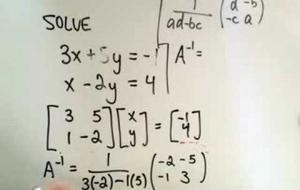 SOLVE
1/(ad-bc) (d -b
-c a)
3x + 5y = -1
A⁻¹ =
x - 2y = 4
[3 5
1 -2] [x
y] = [-1
4]
A⁻¹ = 1/(3(-2)-1(5)) (-2 -5
-1 3)